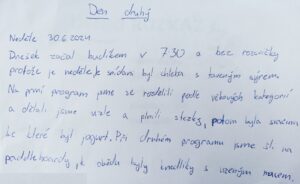 Den druhý
Neděle 30.6.2024
Dnešek začal budíčkem v 7:30 a bez rozcvičky
protože je neděle, k snídani byl chleba s taveným sýrem.
Na první program jsme se rozdělili podle věkových kategorií
a dělali jsme uzle a plnili stezky, potom byla svačina
ke které byl jogurt. Při druhém programu jsme šli na
paddleboardy, k obědu byly knedlíky s uzeným masem.